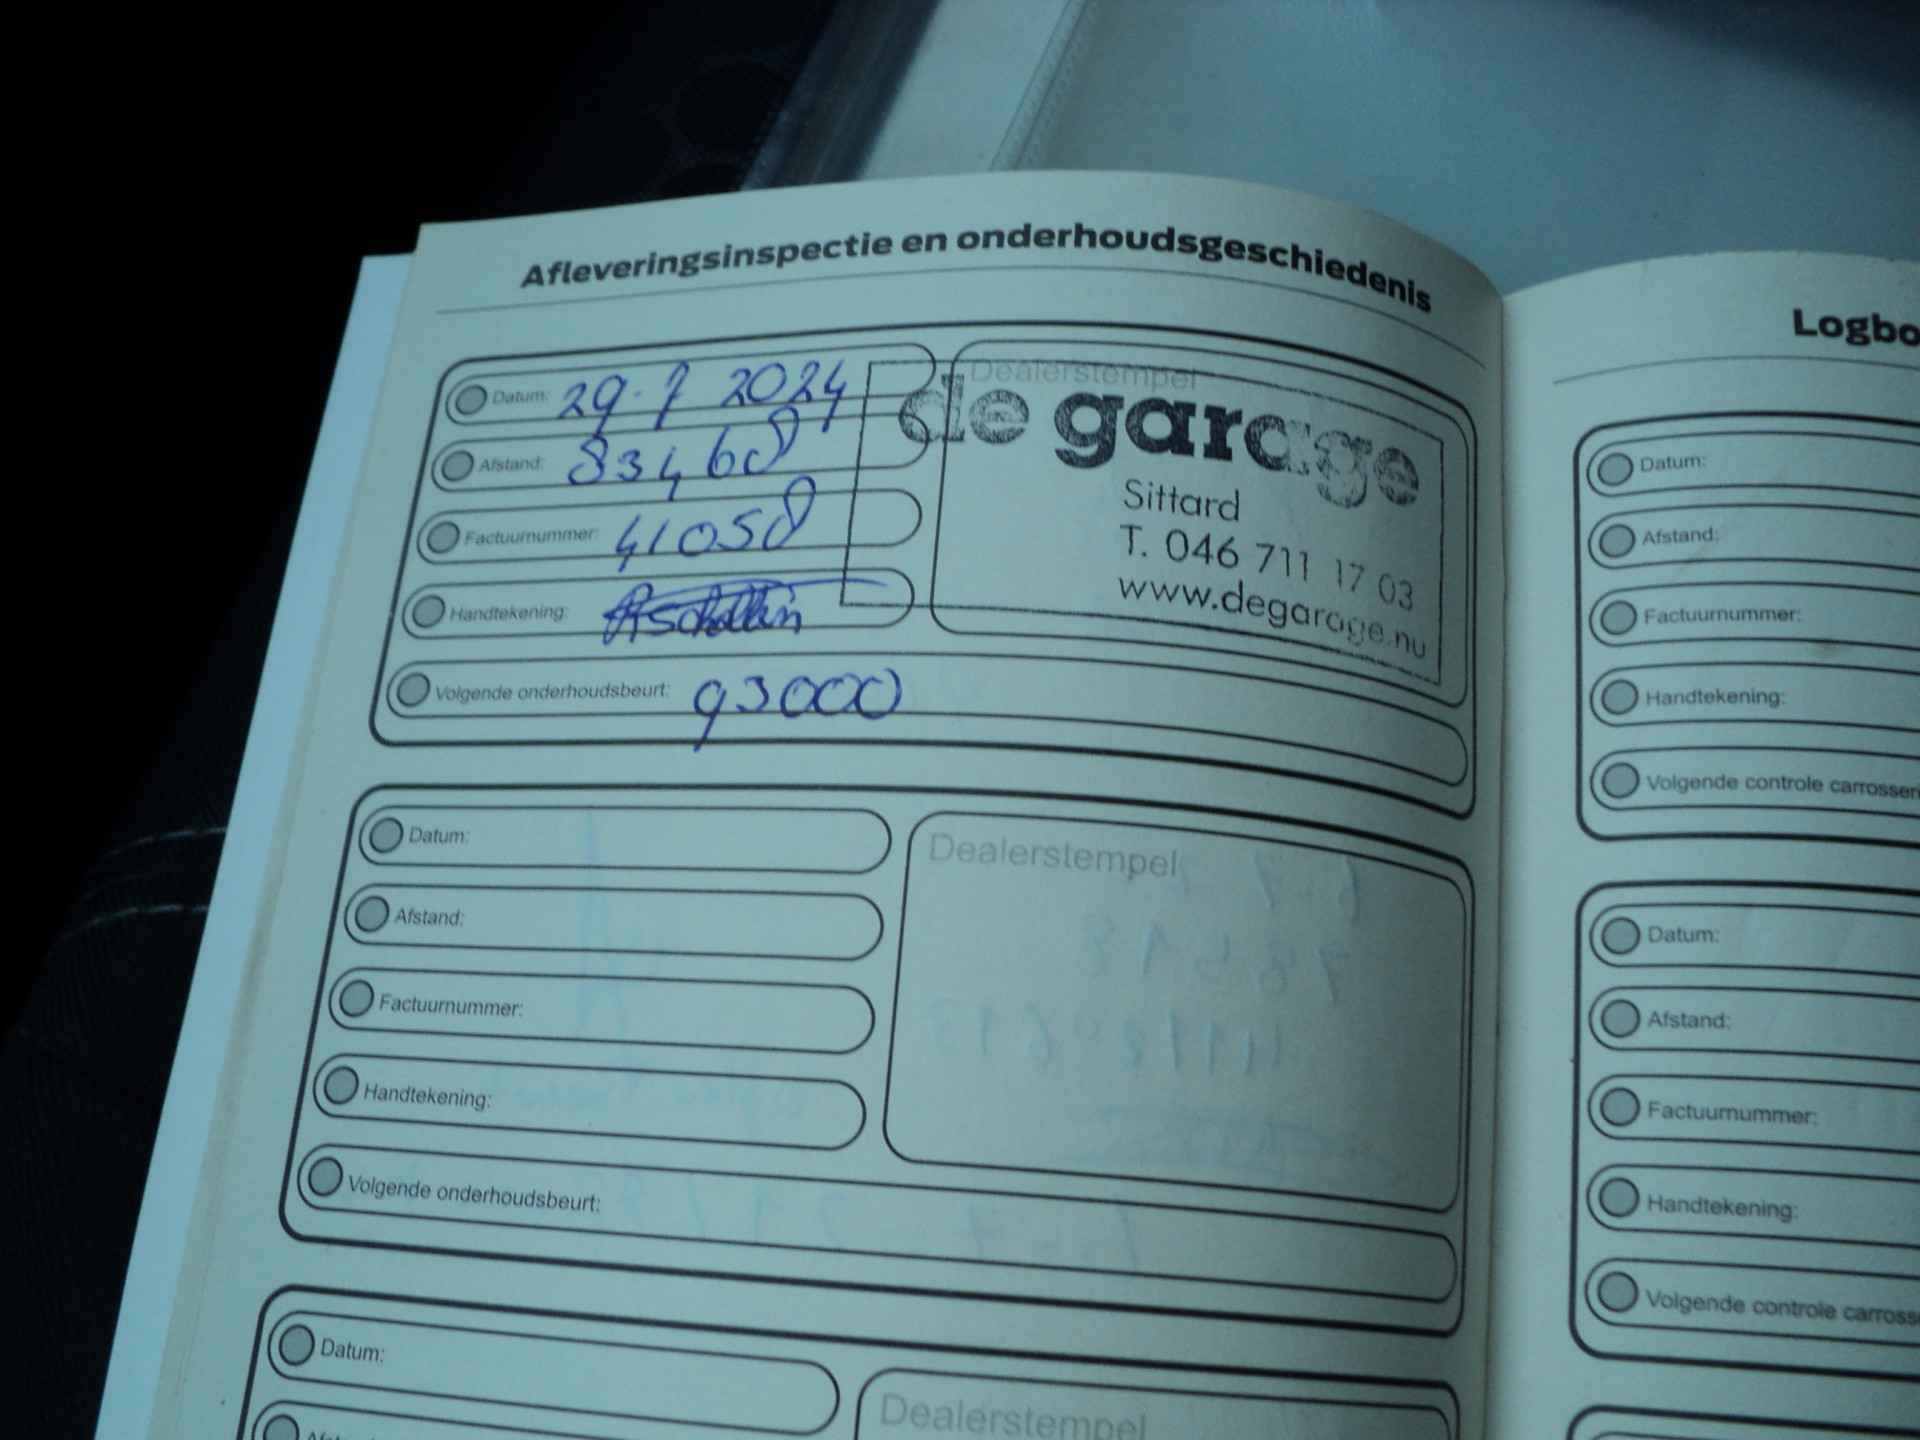 Afleveringsinspectie en onderhoudsgeschiedenis
Datum: 29-7 2024
Afstand: 83468
Factuurnummer: 41058
Handtekening:
Volgende onderhoudsbeurt: 93000
Dealerstempel
de garage
Sittard
T. 046 711 17 03
www.degarage.nu
Datum:
Afstand:
Factuurnummer:
Handtekening:
Volgende onderhoudsbeurt:
Dealerstempel
Datum:
Dealerstempel
Logbo
Datum:
Afstand:
Factuurnummer:
Handtekening:
Volgende controle carrosser
Datum:
Afstand:
Factuurnummer:
Handtekening:
Volgende controle carross